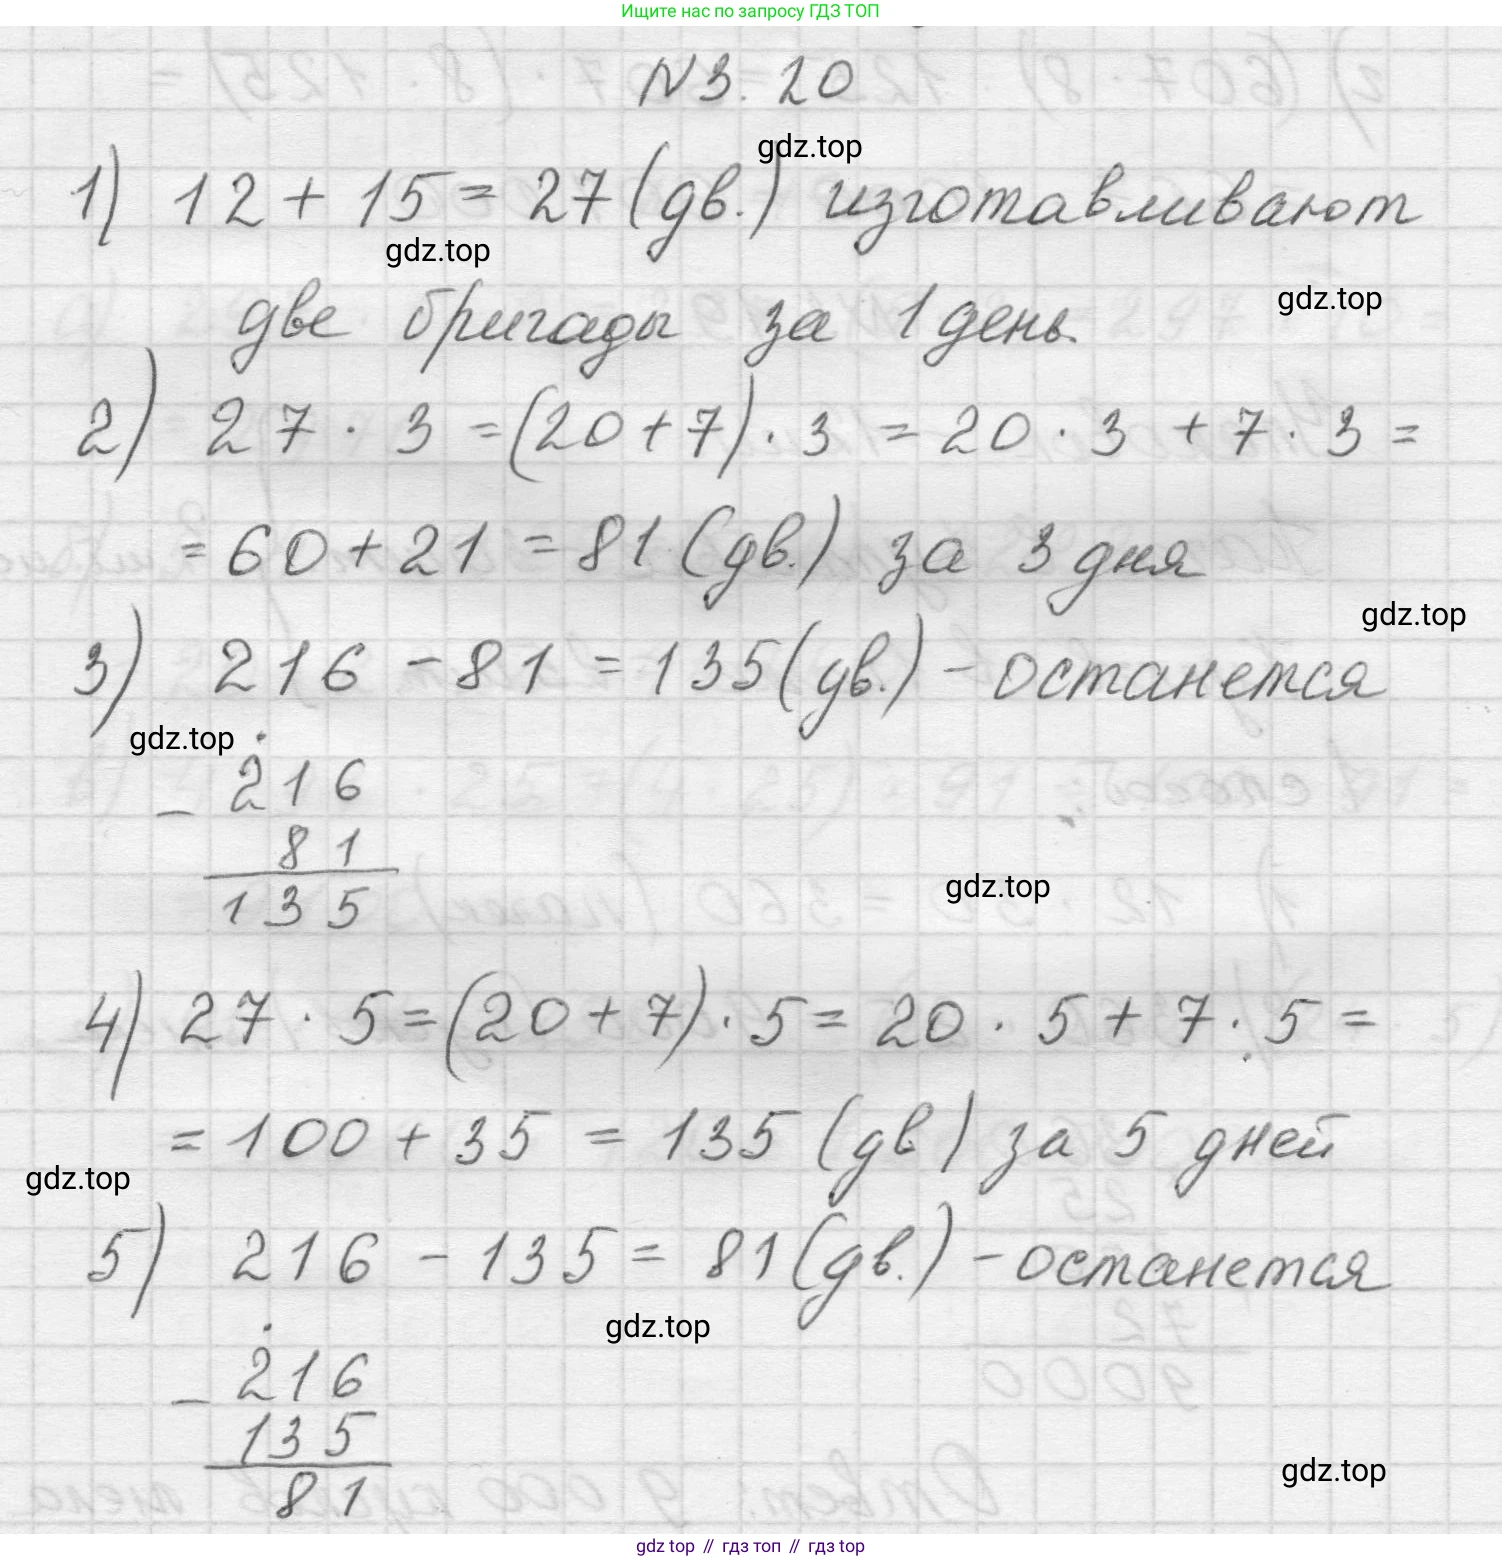 Ищите нас по запросу ГДЗ ТОП
N3.20
gdz.top
1) 12 + 15 = 27 (дв.) изготавливают
gdz.top
gdz.top
две бригады за 1 день.
2) 27 · 3 = (20 + 7) · 3 = 20 · 3 + 7 · 3 =
= 60 + 21 = 81 (дв.) за 3 дня
gdz.top
3) 216 - 81 = 135 (дв.) - останется
gdz.top
- 216
81
135
gdz.top
4) 27 · 5 = (20 + 7) · 5 = 20 · 5 + 7 · 5 =
= 100 + 35 = 135 (дв) за 5 дней
gdz.top
5) 216 - 135 = 81 (дв.) - останется
gdz.top
- 216
135
81
gdz.top
gdz top // гдз топ // гдз top